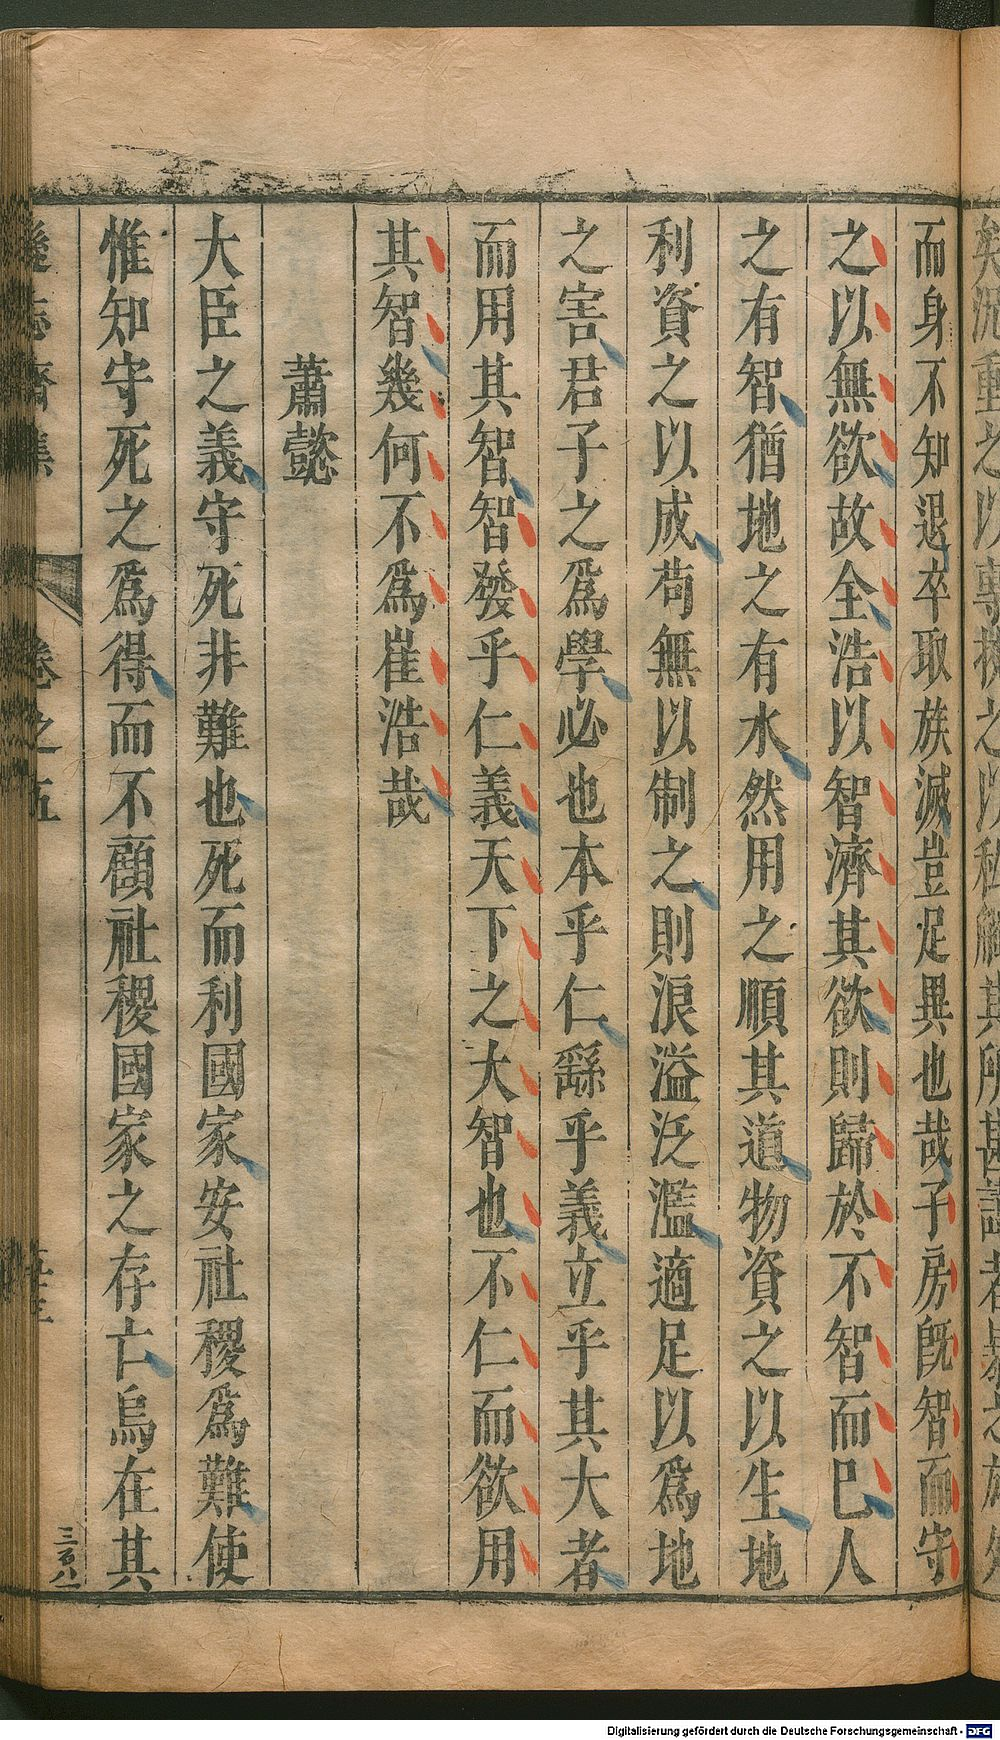 而身不知退卒取族滅豈足異也哉子房旣智而守
之以無欲故全浩以智濟其欲則歸於不智而巳人
之有智猶地之有水然用之順其道物資之以生地
利資之以成苟無以制之則浪溢泛濫適足以爲地
之害君子之爲學必也本乎仁繇乎義立乎其大者
而用其智智發乎仁義天下之大智也不仁而欲用
其智幾何不爲崔浩哉
蕭懿
大臣之義守死非難也死而利國家安社稷爲難使
惟知守死之爲得而不顧社稷國家之存亡烏在其
卷之五
三百八
Digitalisierung gefördert durch die Deutsche Forschungsgemeinschaft - DFG